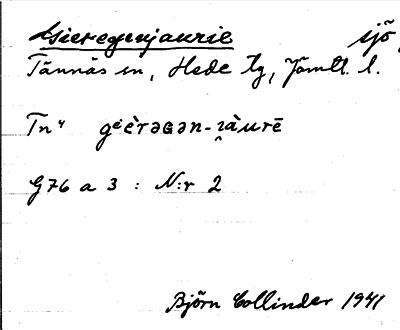 Gieregenjaurie sjö
Tännäs sn, Hede tg, Jämtl. l.
Tnⁿ gᵉèrəɢən-ɿàurē
G 76 a 3 : N:r 2
Björn Collinder 1941